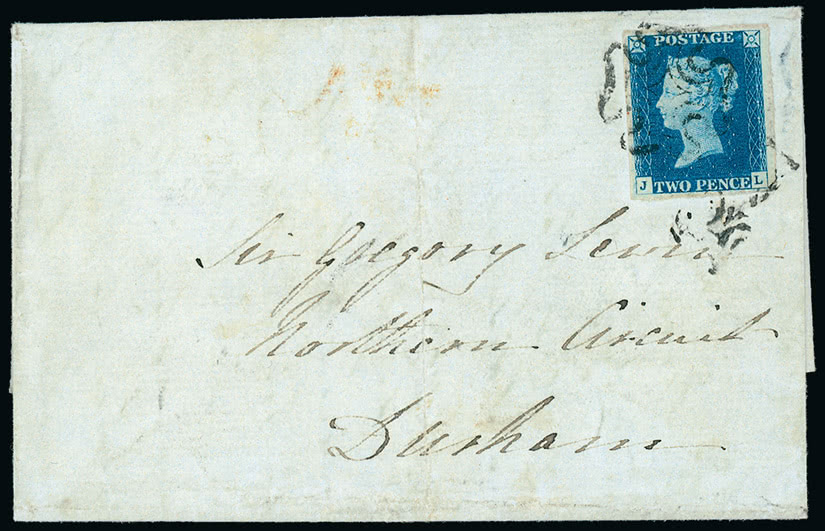 POSTAGE
J TWO PENCE L
Sir Gregory Lewin
Northern Circuit
Durham